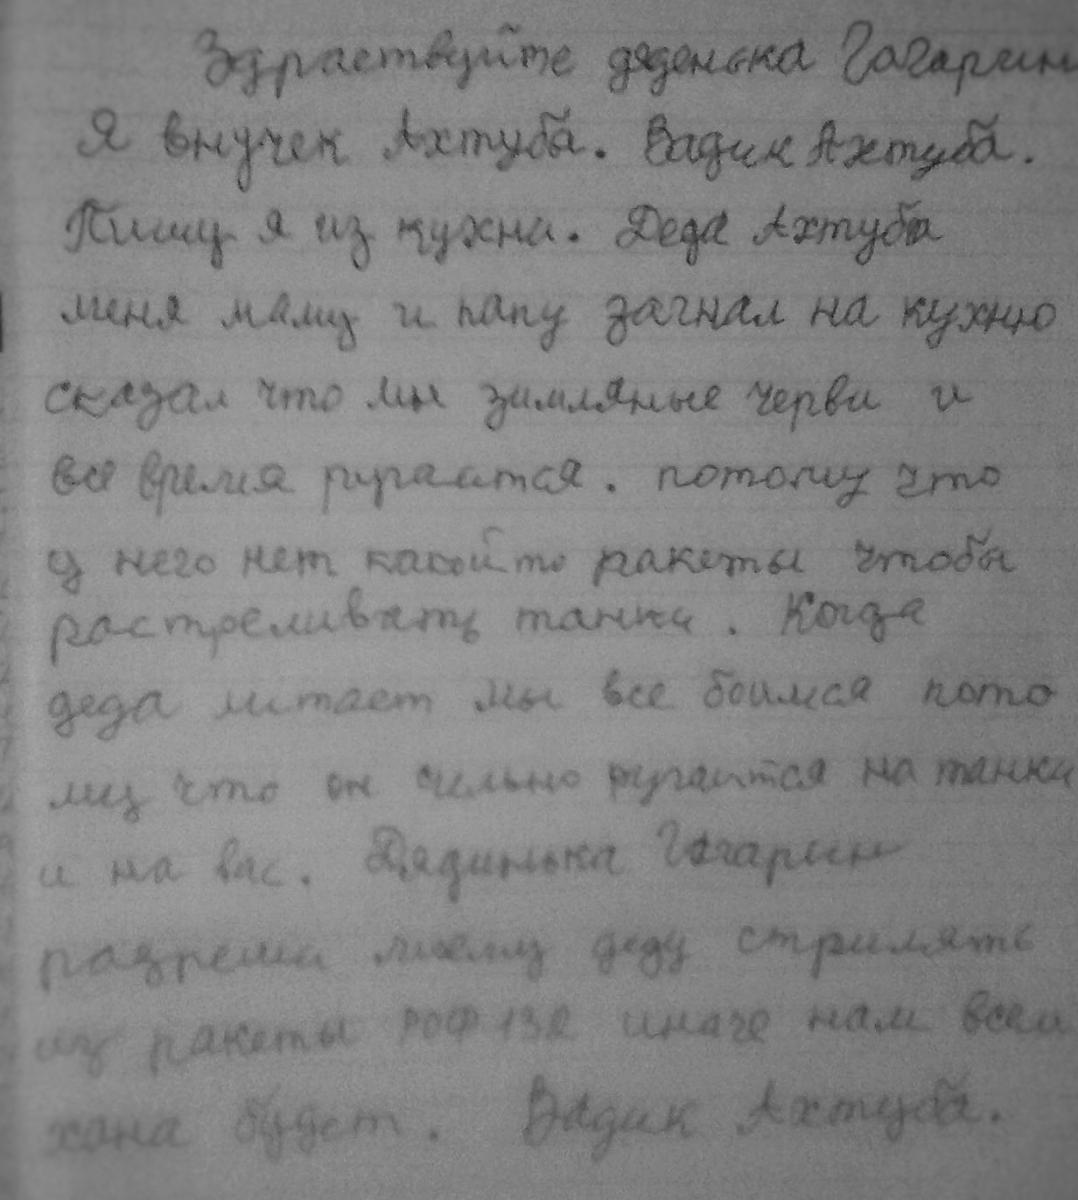 Здраствуйте дяденька Гагарин
Я внучек Ахтуба. Вадик Ахтуба.
Пишу я из кухни. Деда Ахтуба
меня маму и папу загнал на кухню
сказал что мы зимляные черви и
все время ругаится. потому что
у него нет какойто ракеты чтобы
растреливать танки. Когда
деда литает мы все боимся пото
му что он сильно ругаится на танки
и на вас. Дядинька Гагарин
разреши моему деду стрилять
из ракеты РОФ 132 иначе нам всем
хана будет. Вадик Ахтуба.